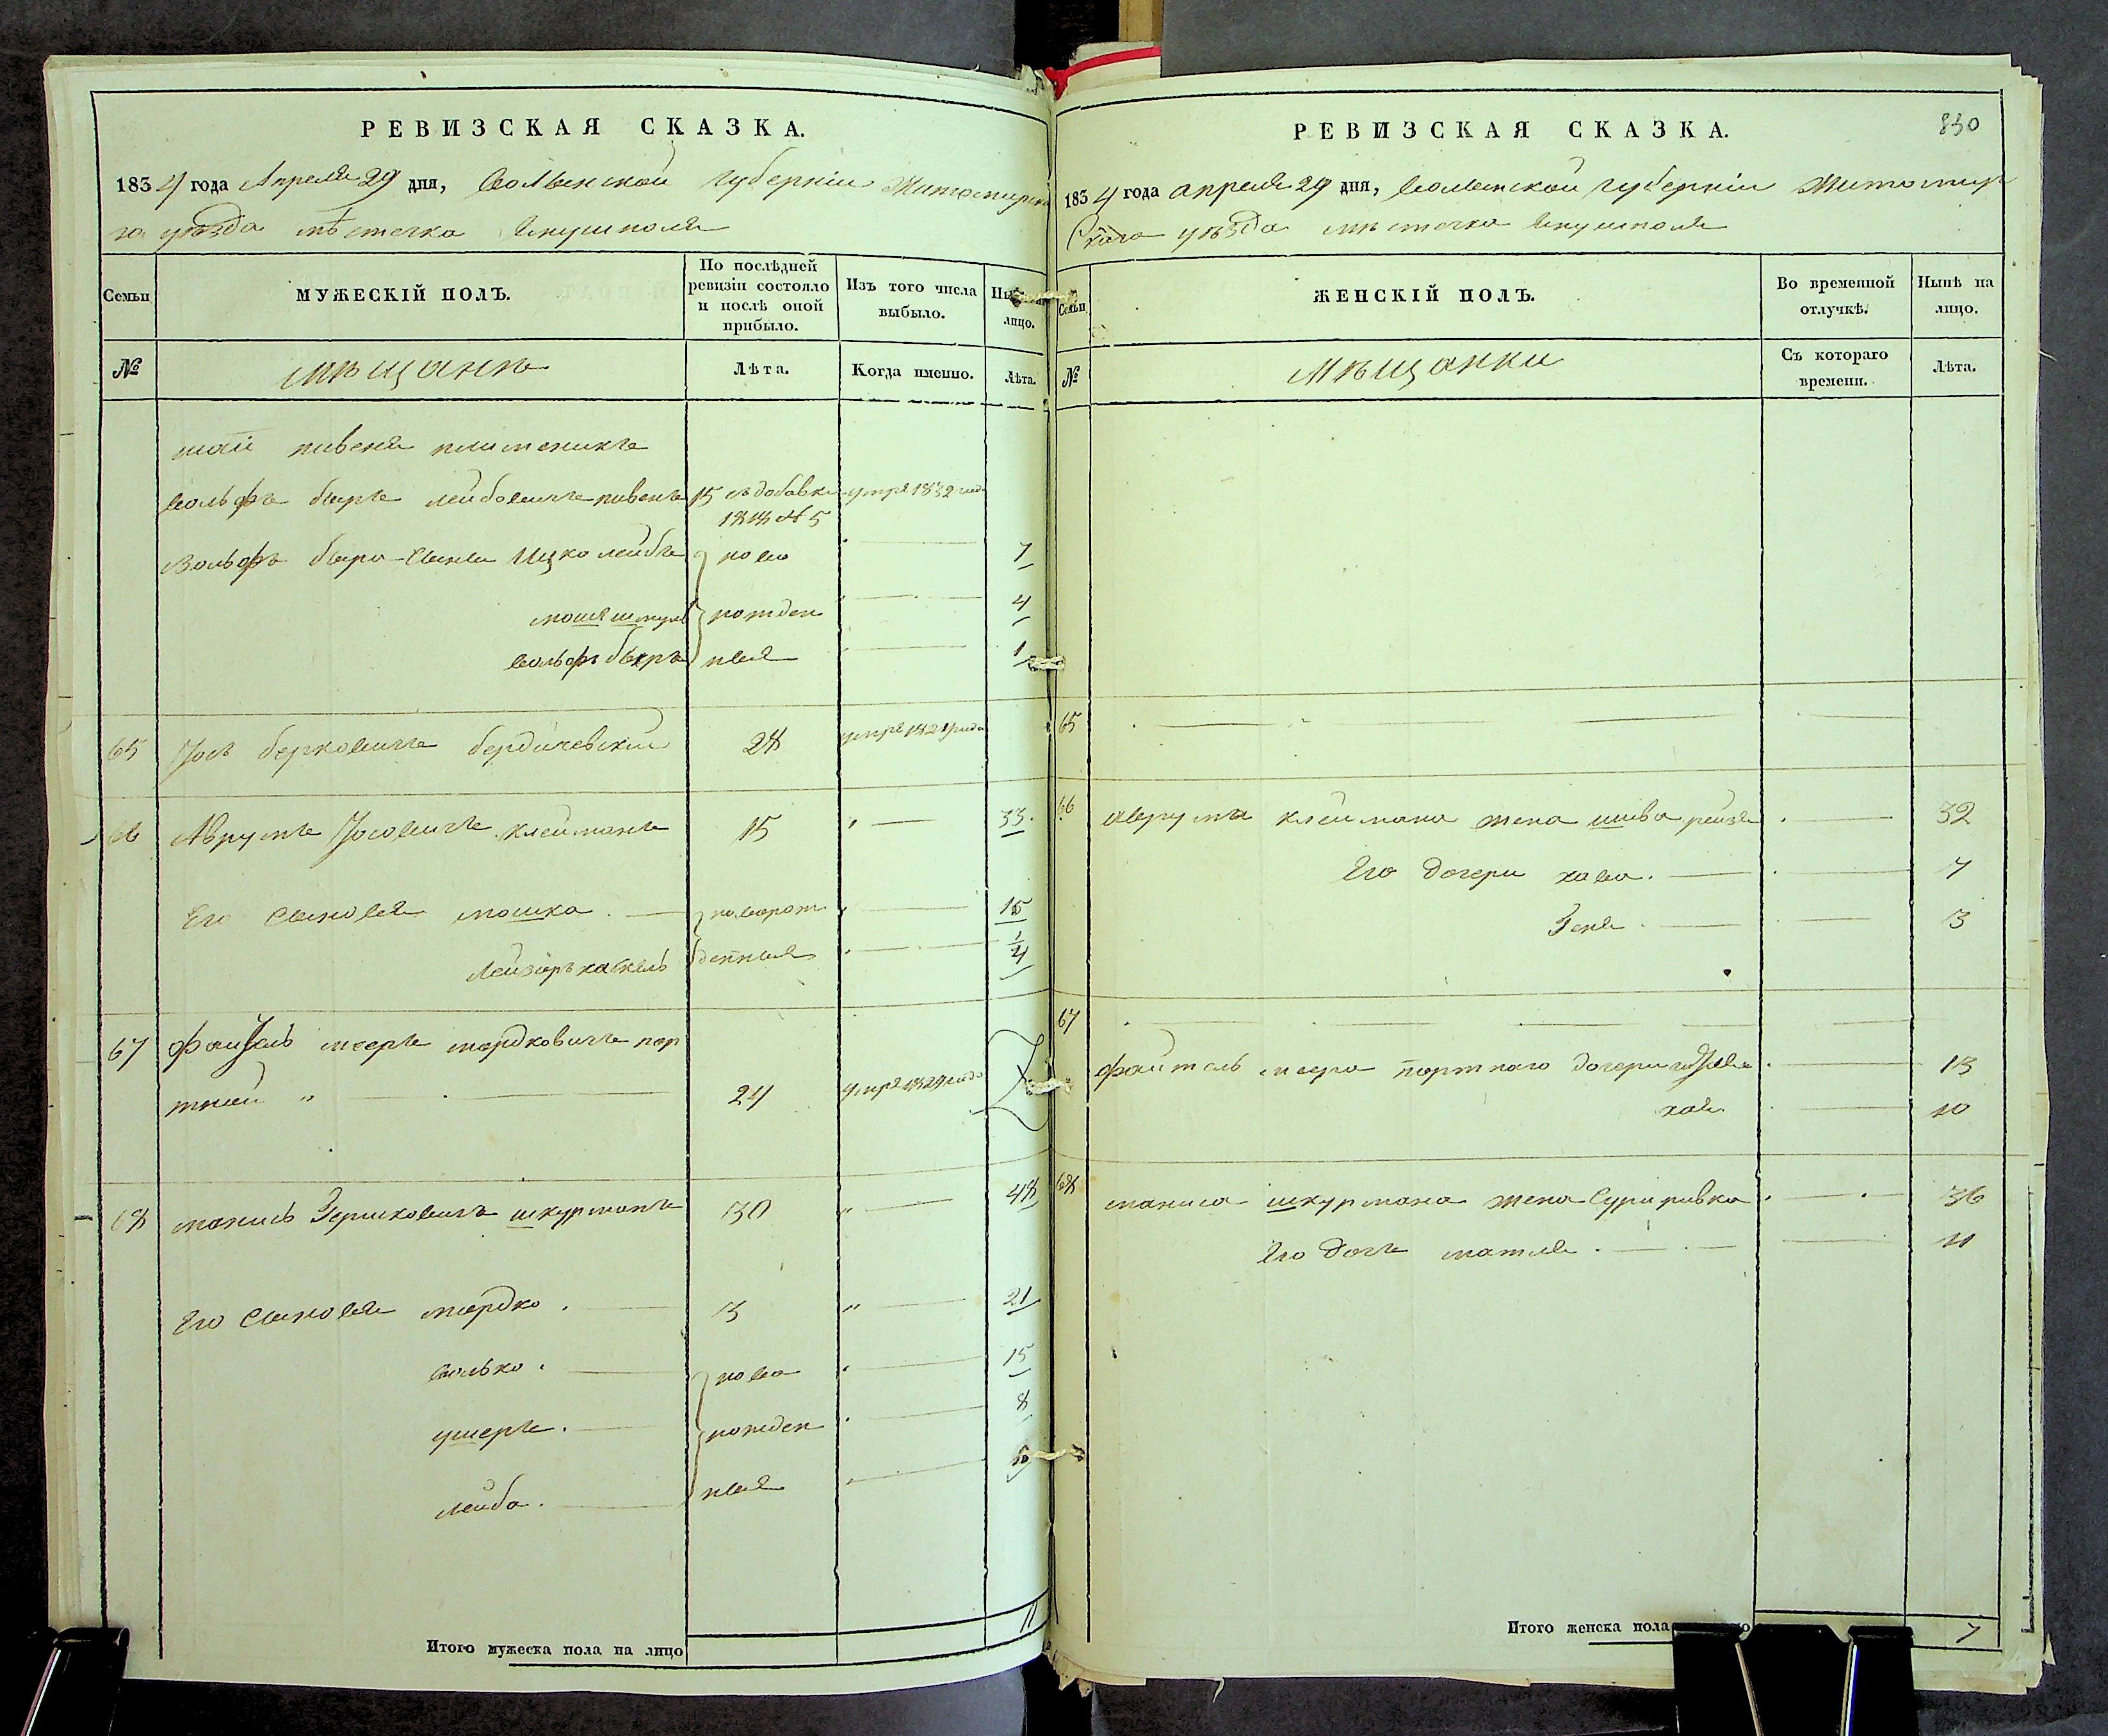 РЕВИЗСКАЯ СКАЗКА.
1834 года Апреля 29 дня, Волынской губерніи Житомирска
го уѣзда мѣстечка Янушполя
Семьи
МУЖЕСКІЙ ПОЛЪ.
По послѣдней ревизіи состояло и послѣ оной прибыло.
Изъ того числа выбыло.
лицо.
№
мѣщанѣ
Лѣта.
Когда именно.
Лѣта.
пивеня племеникъ
Вольфъ беръ лейбовичъ пивень 15 съ добавки умре 1832 года
1818 № 5
Вольфъ бера сыны Ицко лейба ново 7
мошя шмуль рожден 4
вольфъ беръ ныя 1
65 Іось берковичъ бердичевский 28 умре 1821 года
66 Аврумъ Іосовичъ клейманъ 15 33
Его сыновея мошко новорож 15
Лейзоръ хаскель денныя 1/4
67 мееръ мордковичъ пор
тной 24 умре 1829 года
68 манись Гершковичъ шкурманъ 30 48
Его сыновея мордко 3 21
волько ново 15
ушеръ рожден 8
лейба ныя
Итого мужеска пола на лицо 11
830
РЕВИЗСКАЯ СКАЗКА.
1834 года апреля 29 дня, Волынской губерніи Житомир
Скаго уѣзда мѣстечка Янушполя
Семьи
ЖЕНСКІЙ ПОЛЪ.
Во временной отлучкѣ.
Нынѣ на лицо.
№
Мѣщанки
Съ котораго времени.
Лѣта.
65
66 аврума клеимана жена шива рейзя 32
Его дочери хава 7
Геня 3
67
файтель меера портнаго дочери 13
хая 10
68 маниса шкурмана жена Сура ривка 36
Его дочь матля 11
Итого женска пола 7